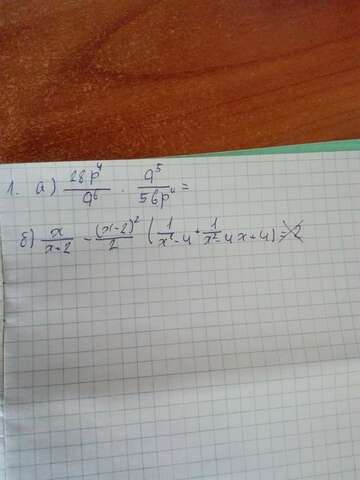 1. а) 28p⁴/q⁶ · q⁵/56p⁴ =
б) x/x-2 - (x-2)²/2 (1/x²-4 + 1/x²-4x+4) = 2